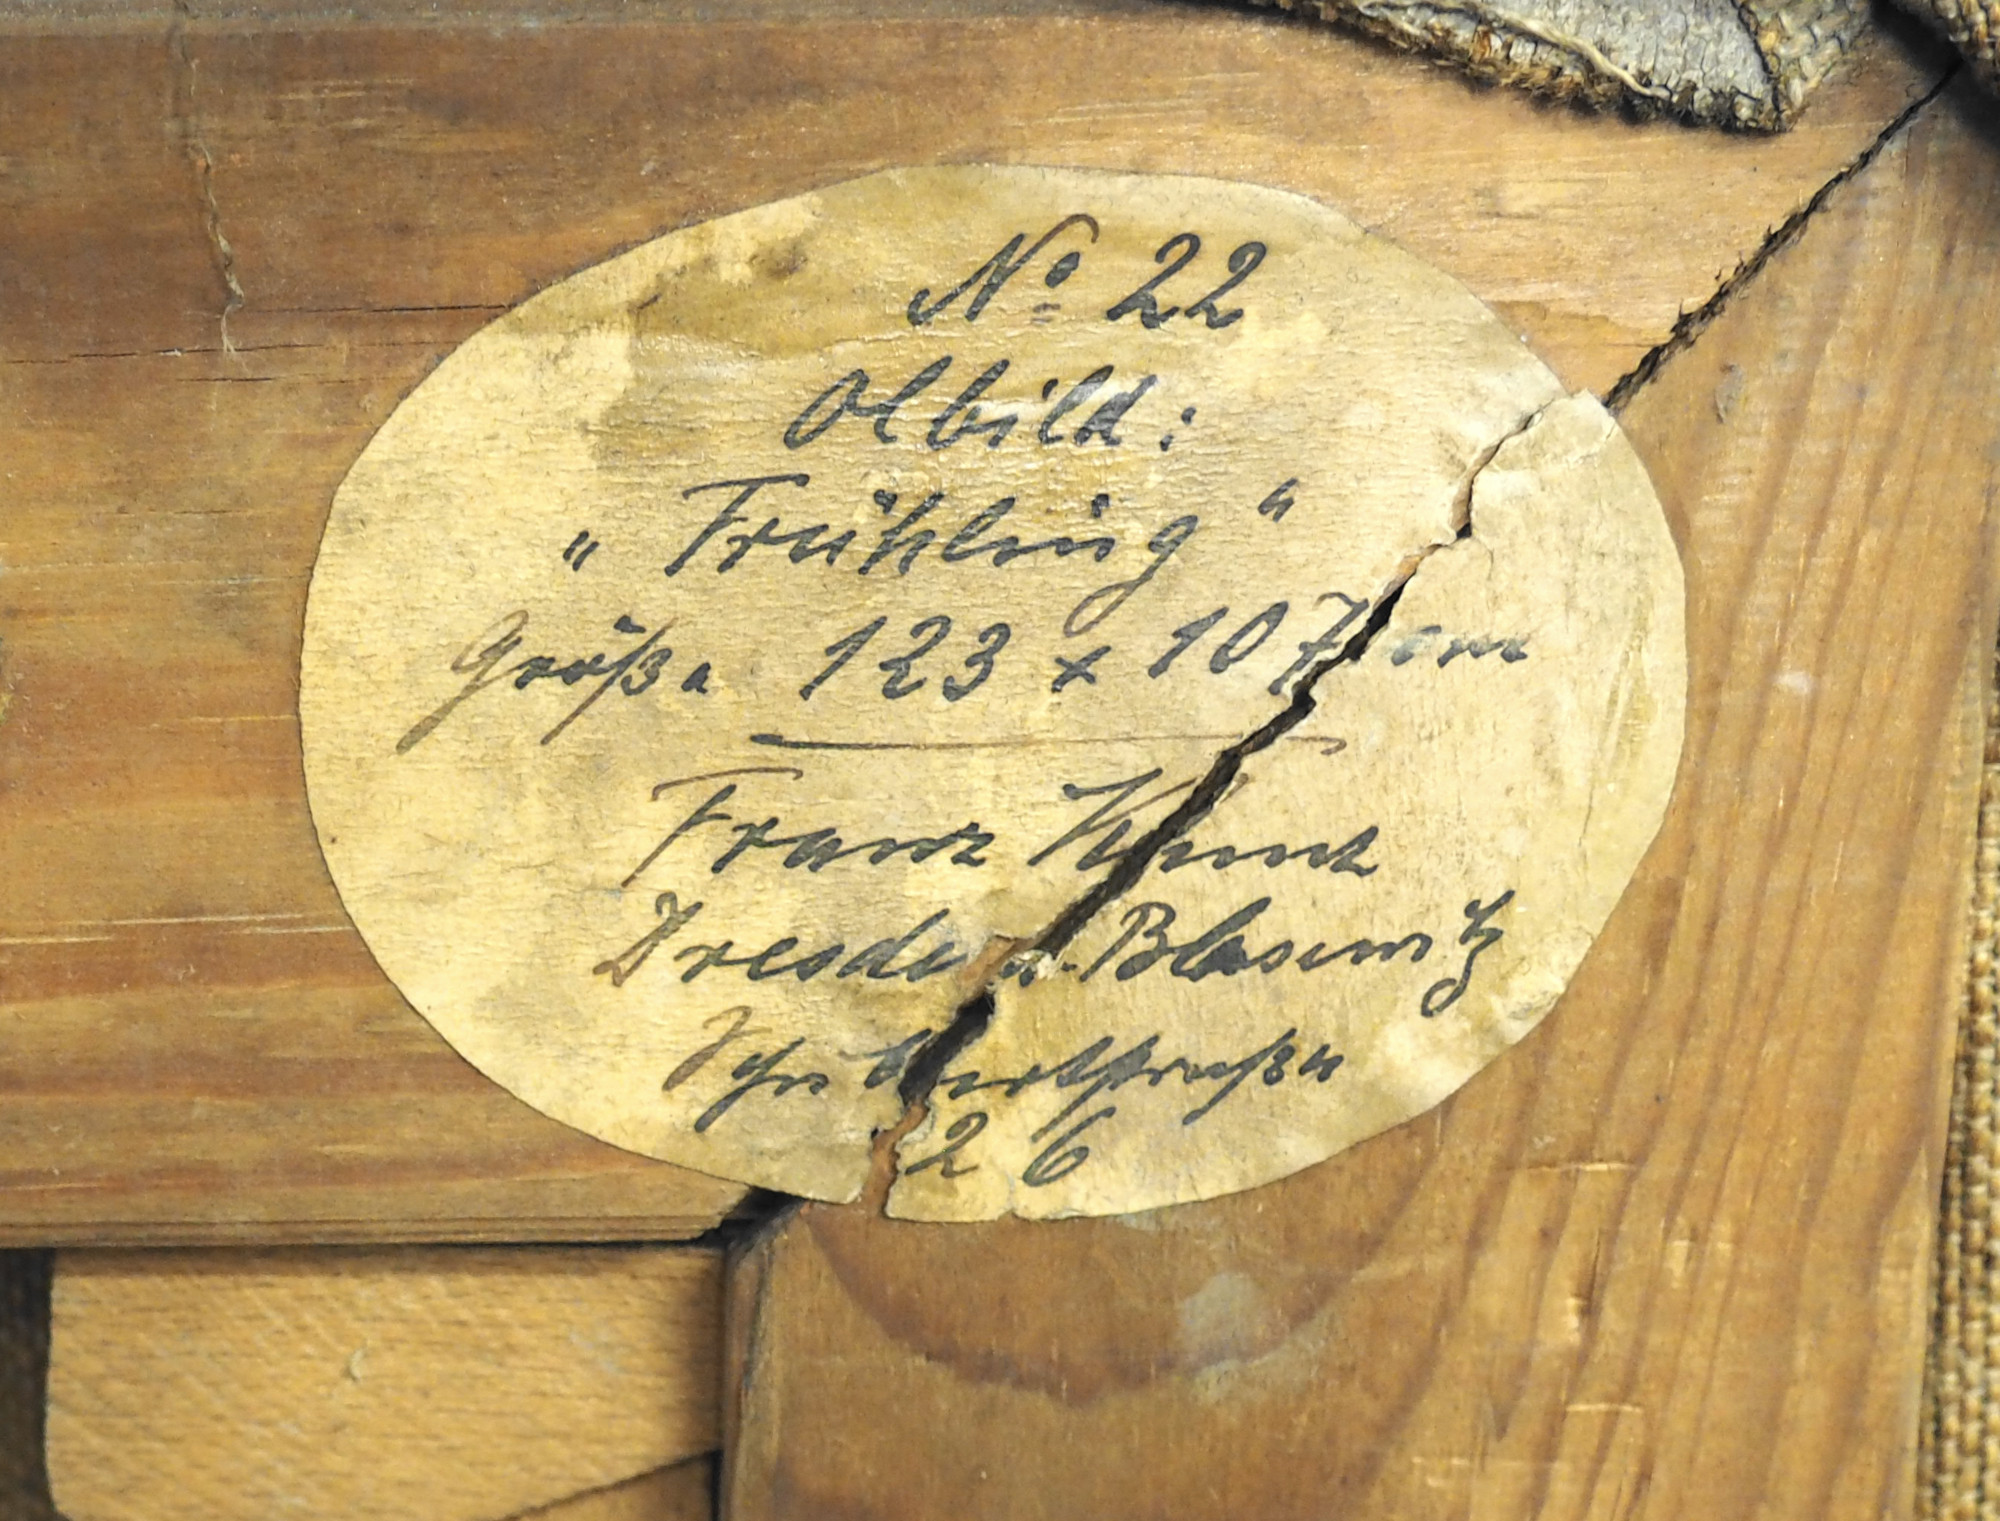 Nº 22
Olbild:
„Frühling“
Größe 123 x 107 cm
Franz Kunz
Dresden. Blasewitz
Schubertstraße
26